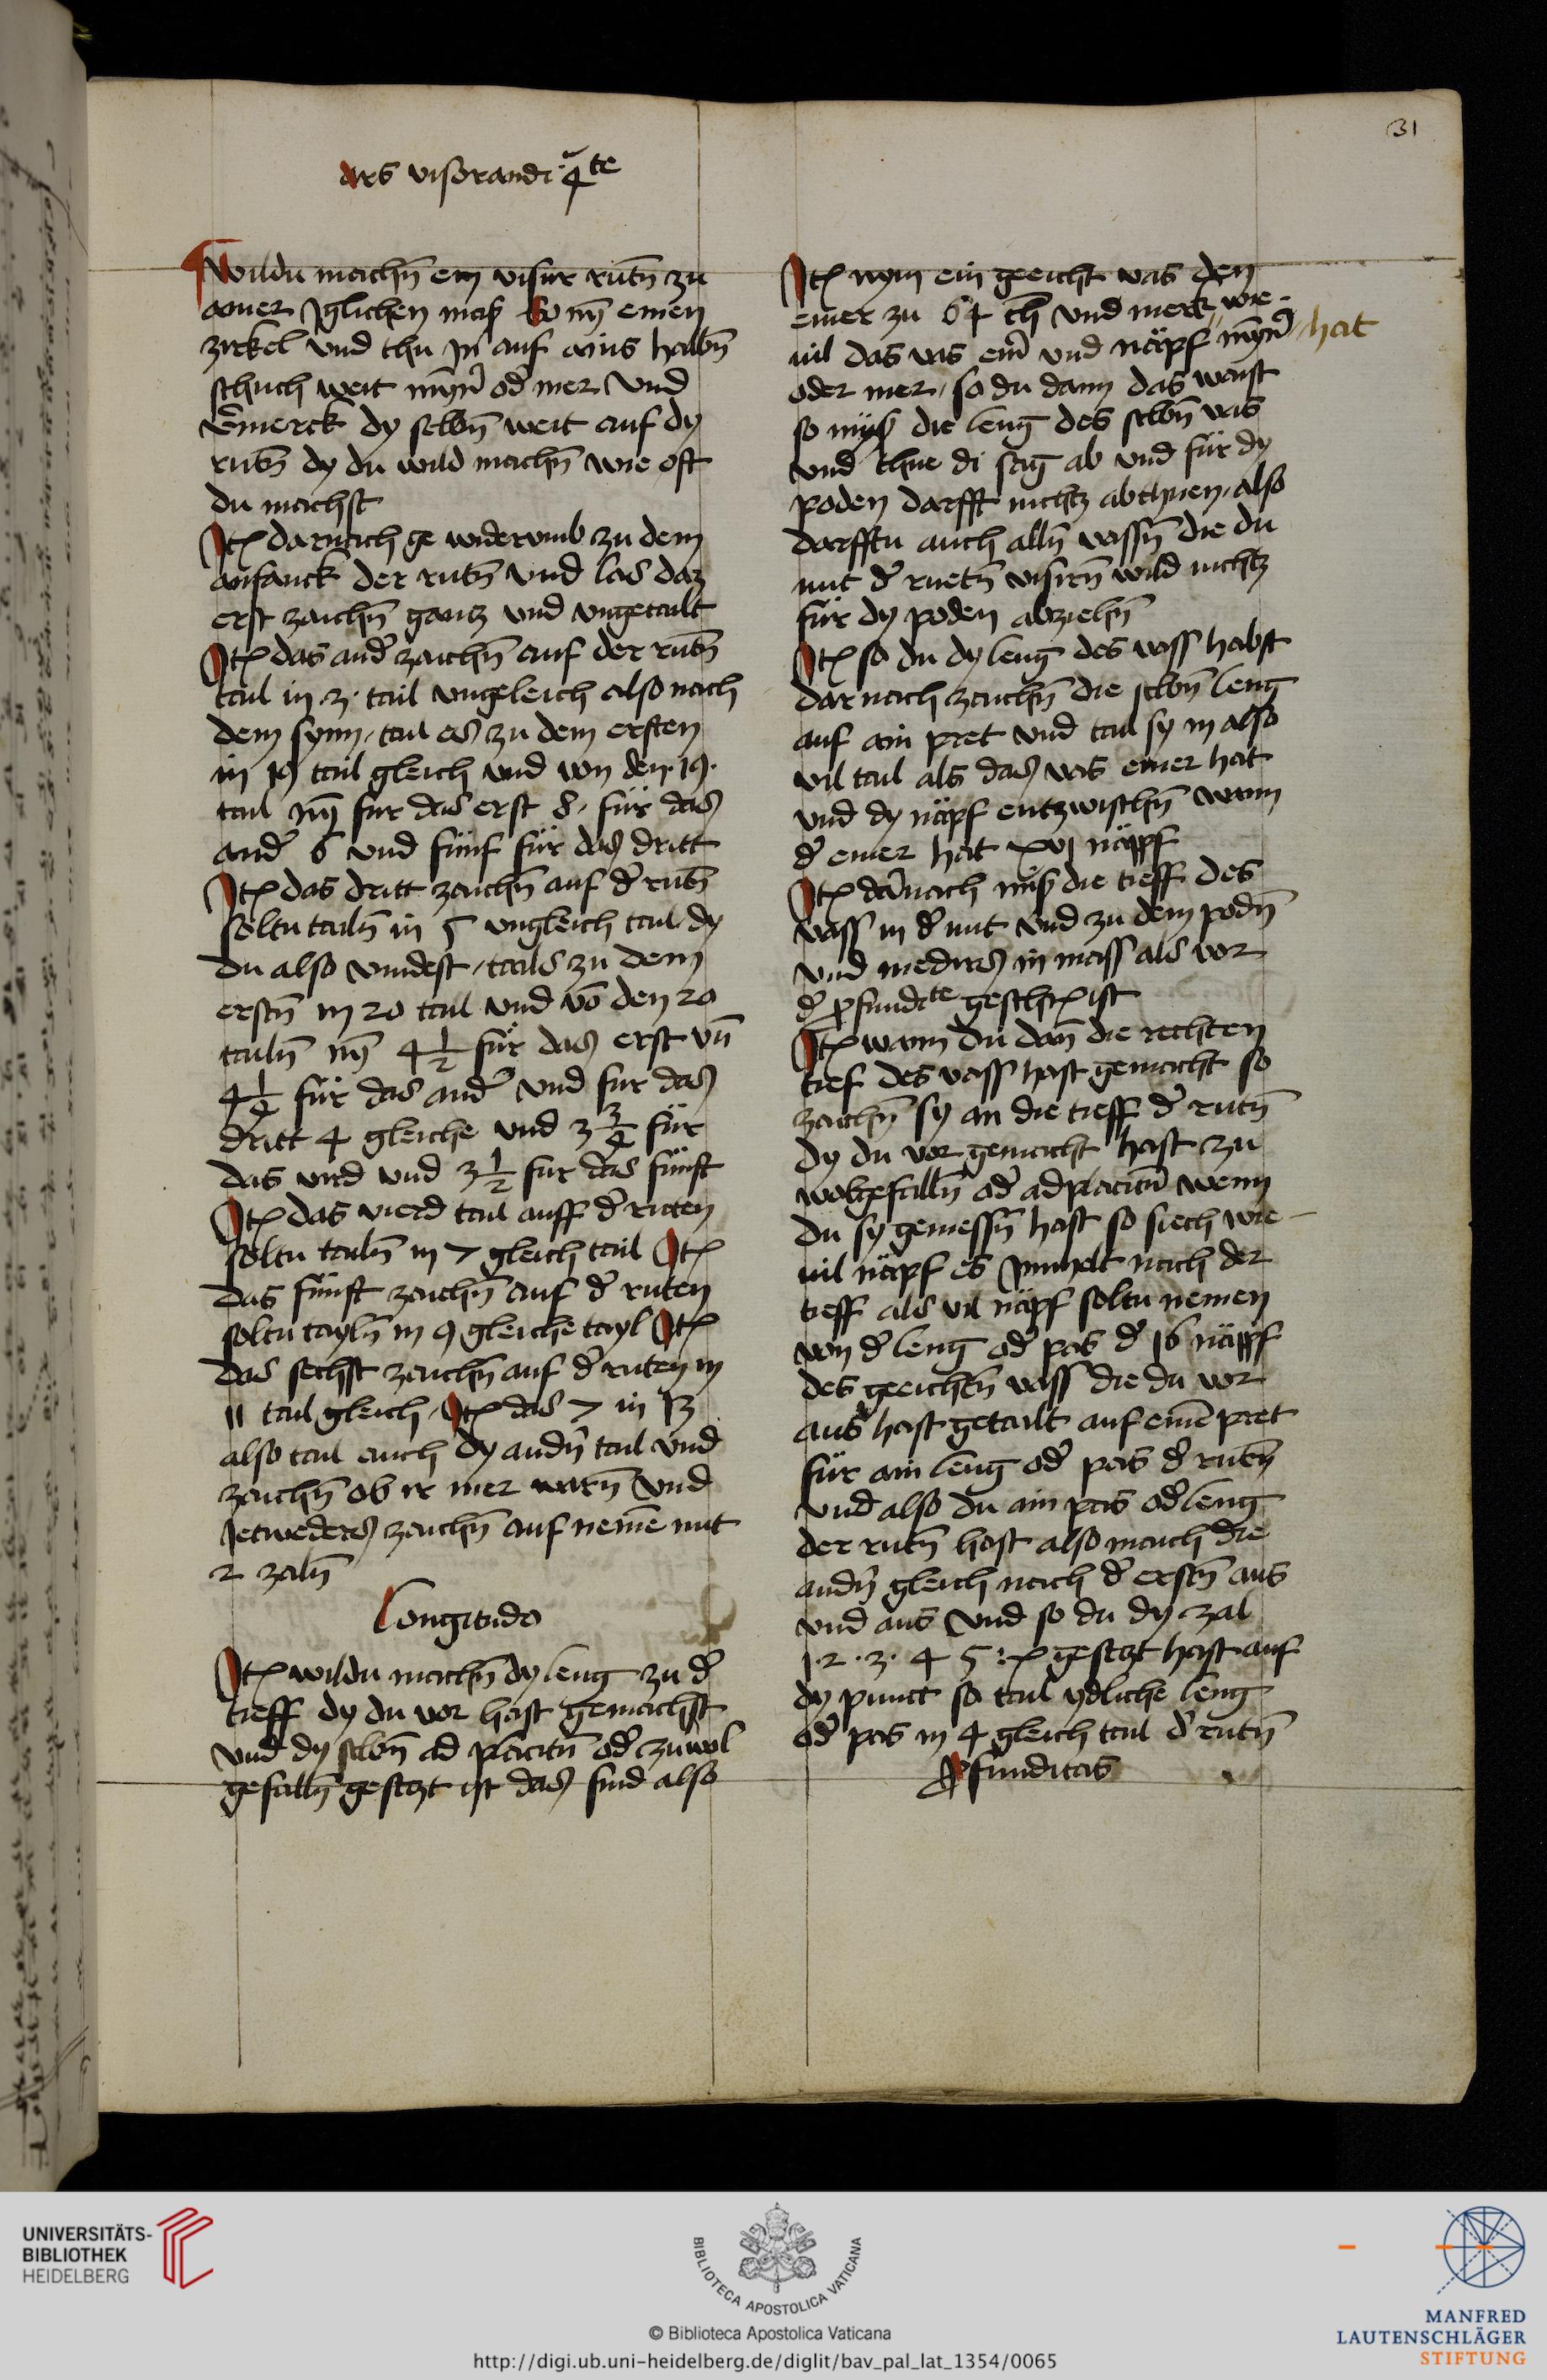 31
ars visorandi 4te
Wildu machn̄ ein visur rutn̄ zu
ainer Iglichen maß So nȳ einen
zirkel vnd thu in auf ains halbn̄
schuch weit mȳn̄ od̄ mer vnd
v̄merck dy selbn̄ weit auf dy
rutn̄ dy du wild machn̄ wie oft
du machst
Itꝫ darnach ge widerumb zu dem
anfanck der rutn̄ vnd las daz
erst zaichn̄ gantz vnd vngetailt
Itꝫ das and̄ zaichn̄ auf der rutn̄
tail in ·3· tail vngeleich also nach
dem synn, tail es zu dem ersten
in 19 tail gleich vnd von den ·19·
tail nȳ fur das erst 8, für das
and̄ 6 vnd fünf für das dritt
Itꝫ das dritt zaichn̄ auf d̄ rutn̄
soltu tailn̄ in 5 vngleich tail dy
du also vindest, tails zu dem
erstn̄ in 20 tail vnd vō den 20
tailn̄ nȳ 4 1/2 für das erst vn̄
4 1/4 für das and̄ vnd fur das
dritt 4 gleiche vnd 3 3/4 für
das vird vnd 3 1/2 fur das fünft
Itꝫ das vierd tail auff d̄ ruten
soltu tailn̄ in 7 gleich tail Itꝫ
das fünft zaichn̄ auf d̄ ruten
soltu tayln̄ in 9 gleiche tayl Itꝫ
das sechst zaichn̄ auf d̄ ruten in
11 tail gleich, Itꝫ das 7 in 13
also tail auch dy andn̄ tail vnd
zaichn̄ ob ir mer warn̄ vnd
Jetweders zaichn̄ auf nemē mit
2 zaln̄
Longitudo
Itꝫ wildu machn̄ dy leng zu d̄
tieff dy du vor hast gemachst
vnd dy selbn̄ ad placitū od̄ zu wol
gefalln̄ gesetzt ist das sind also
Itꝫ nym ein geeicht vas den
eimer zu 64 ch̄ vnd merck wie
uil das vas eim̄ vnd näpf mȳn̄ hat
oder mer, so du dann das waist
so muß die leng des selbn̄ vas
vnd thue di sag ab vnd für dy
poden darfft nichtz abthuen, also
darfftu auch alln̄ vassn̄ die du
mit d̄ ruetn̄ visirn̄ wild nichtz
für dy poden abziehn̄
Itꝫ so du dy leng des vass habst
dar nach zaichn̄ die selbn̄ leng
auf ain pret vnd tail sy in also
vil tail als das vas eimer hat
vnd dy näpf entzwischn̄ wann
d̄ eimer hat xvi näpf
Itꝫ darnach miß die tieff des
vass in d̄ mit vnd zu dem podn̄
vnd mediirs in mass als vor
d̄ ꝓfundite geschrꝫ ist
Itꝫ wann du dan̄ die rechten
tief des vass hast gemacht so
zaichn̄ sy an die tieff d̄ rutn̄
dy du vor gemacht hast zu
wolgefalln̄ od̄ ad placitū wenn
du sy gemessn̄ hast so siech wie
uil näpf es Innhelt nach der
tieff als vil näpf soltu nemen
von d̄ leng od̄ pas d̄ 16 näpf
des geeichtn̄ vass die du vor
aus hast getailt auf eim̄ pret
für ain leng od̄ pas d̄ rutn̄
vnd also du ain pas od̄ leng
der rutn̄ hast also mach die
andn̄ gleich nach d̄ erstn̄ aus
vnd aus vnd so du dy zal
1·2·3· 4 5 gesetzt hast auf
dy punct so tail ydliche leng
od̄ pas in 4 gleich tail d̄ rutn̄
Ꝓfunditas
UNIVERSITÄTS-
BIBLIOTHEK
HEIDELBERG
BIBLIOTECA APOSTOLICA VATICANA
© Biblioteca Apostolica Vaticana
http://digi.ub.uni-heidelberg.de/diglit/bav_pal_lat_1354/0065
MANFRED
LAUTENSCHLÄGER
STIFTUNG